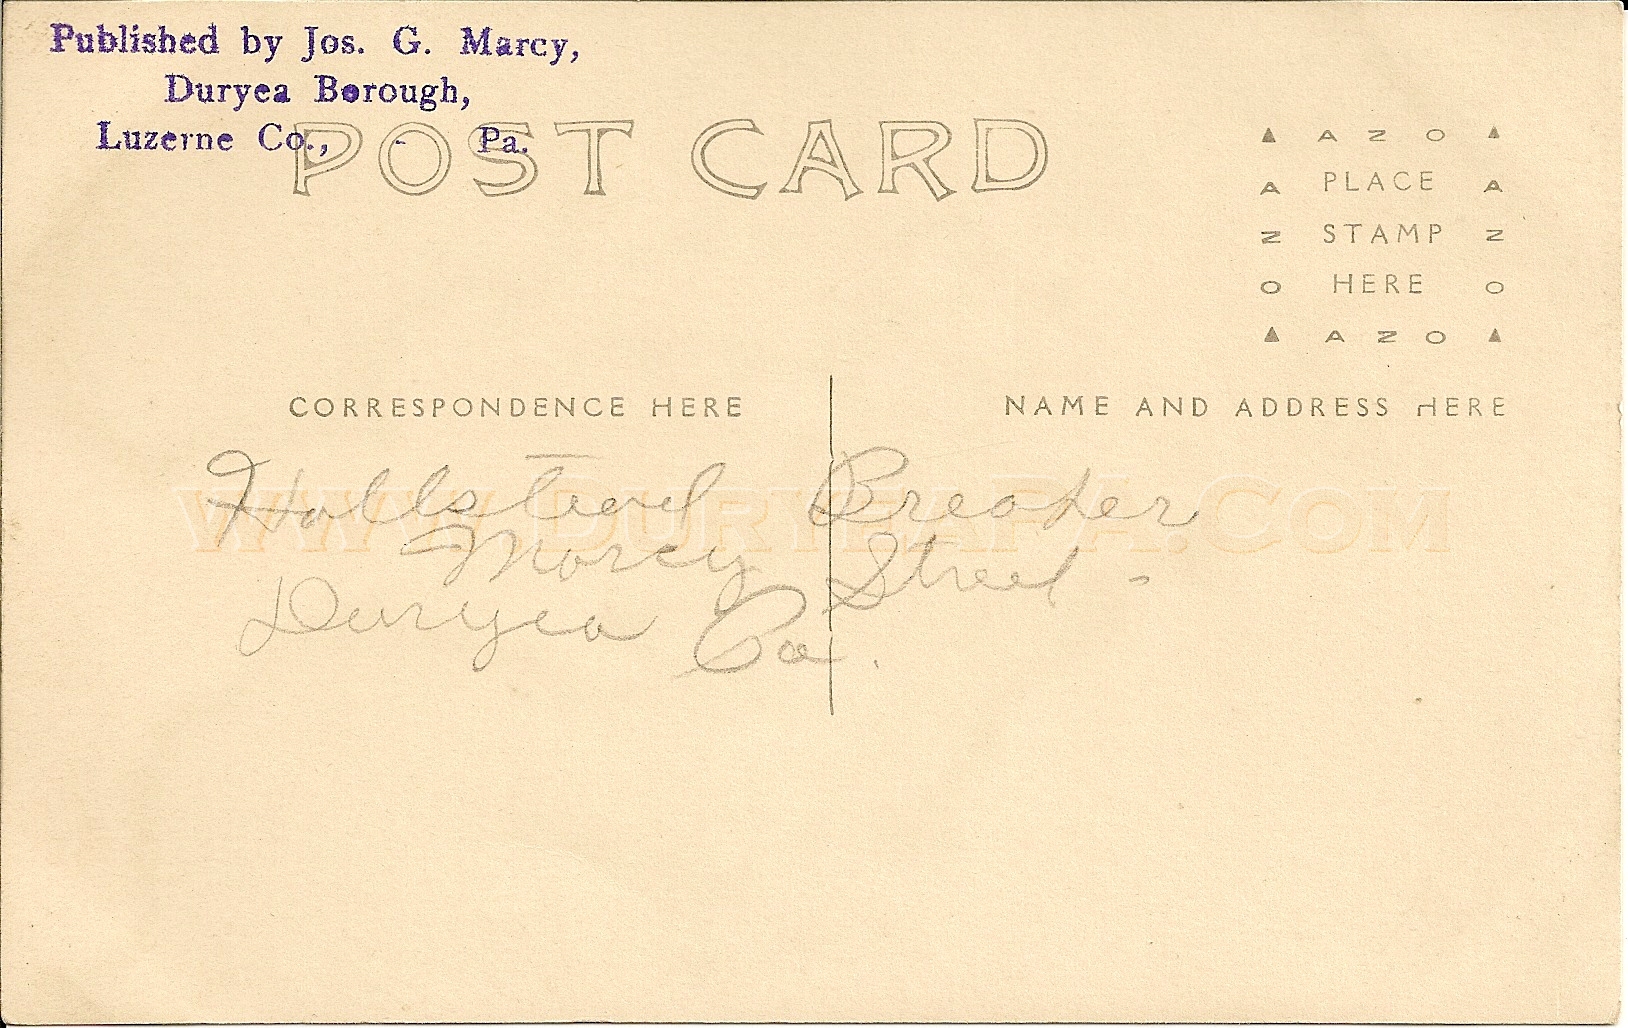 Published by Jos. G. Marcy,
Duryea Borough,
Luzerne Co., - Pa.
POST CARD
AZO
PLACE
STAMP
HERE
AZO
AZO
AZO
CORRESPONDENCE HERE
NAME AND ADDRESS HERE
www.DuryeaPA.com
Hallstead Breaker
Marcy Street -
Duryea Pa.